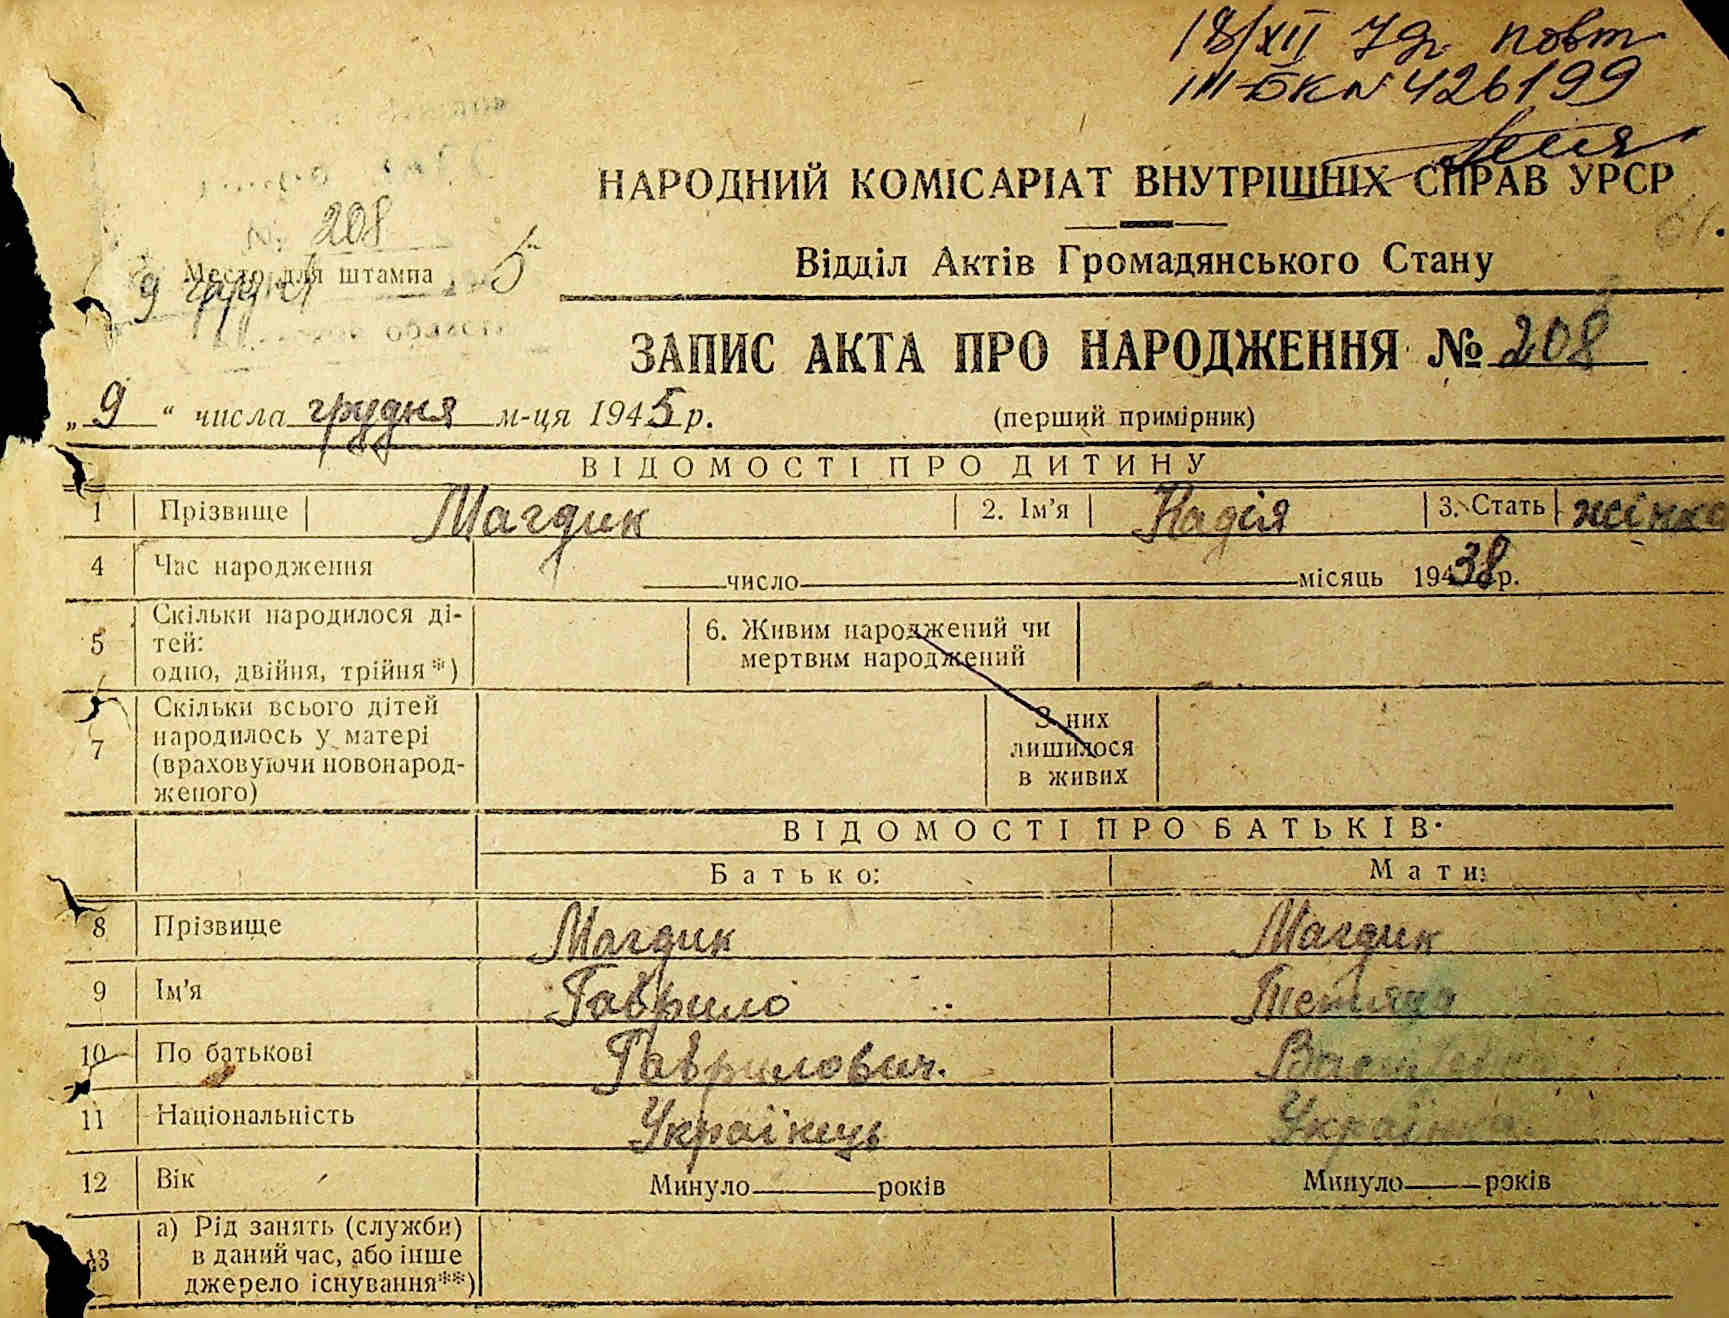 18/XII 79р. повт
III-БК № 426199
НАРОДНИЙ КОМІСАРІАТ ВНУТРІШНІХ СПРАВ УРСР
61.
№ 208
Место для штампа 5
9 грудня
Відділ Актів Громадянського Стану
ЗАПИС АКТА ПРО НАРОДЖЕННЯ № 208
„9“ числа грудня м-ця 1945 р. (перший примірник)
ВІДОМОСТІ ПРО ДИТИНУ
1 Прізвище Магдик 2. Ім'я Надія 3. Стать жіноча
4 Час народження число місяць 1938 р.
5 Скільки народилося ді-
тей:
одно, двійня, трійня*)
6. Живим народжений чи
мертвим народжений
7 Скільки всього дітей
народилось у матері
(враховуючи новонарод-
женого)
З них
лишилося
в живих
ВІДОМОСТІ ПРО БАТЬКІВ
Батько: Мати:
8 Прізвище Магдик Магдик
9 Ім'я Гаврило Тетяна
10 По батькові Гаврилович. Василівна
11 Національність Українець Українка.
12 Вік Минуло років Минуло років
13 а) Рід занять (служби)
в даний час, або інше
джерело існування**)